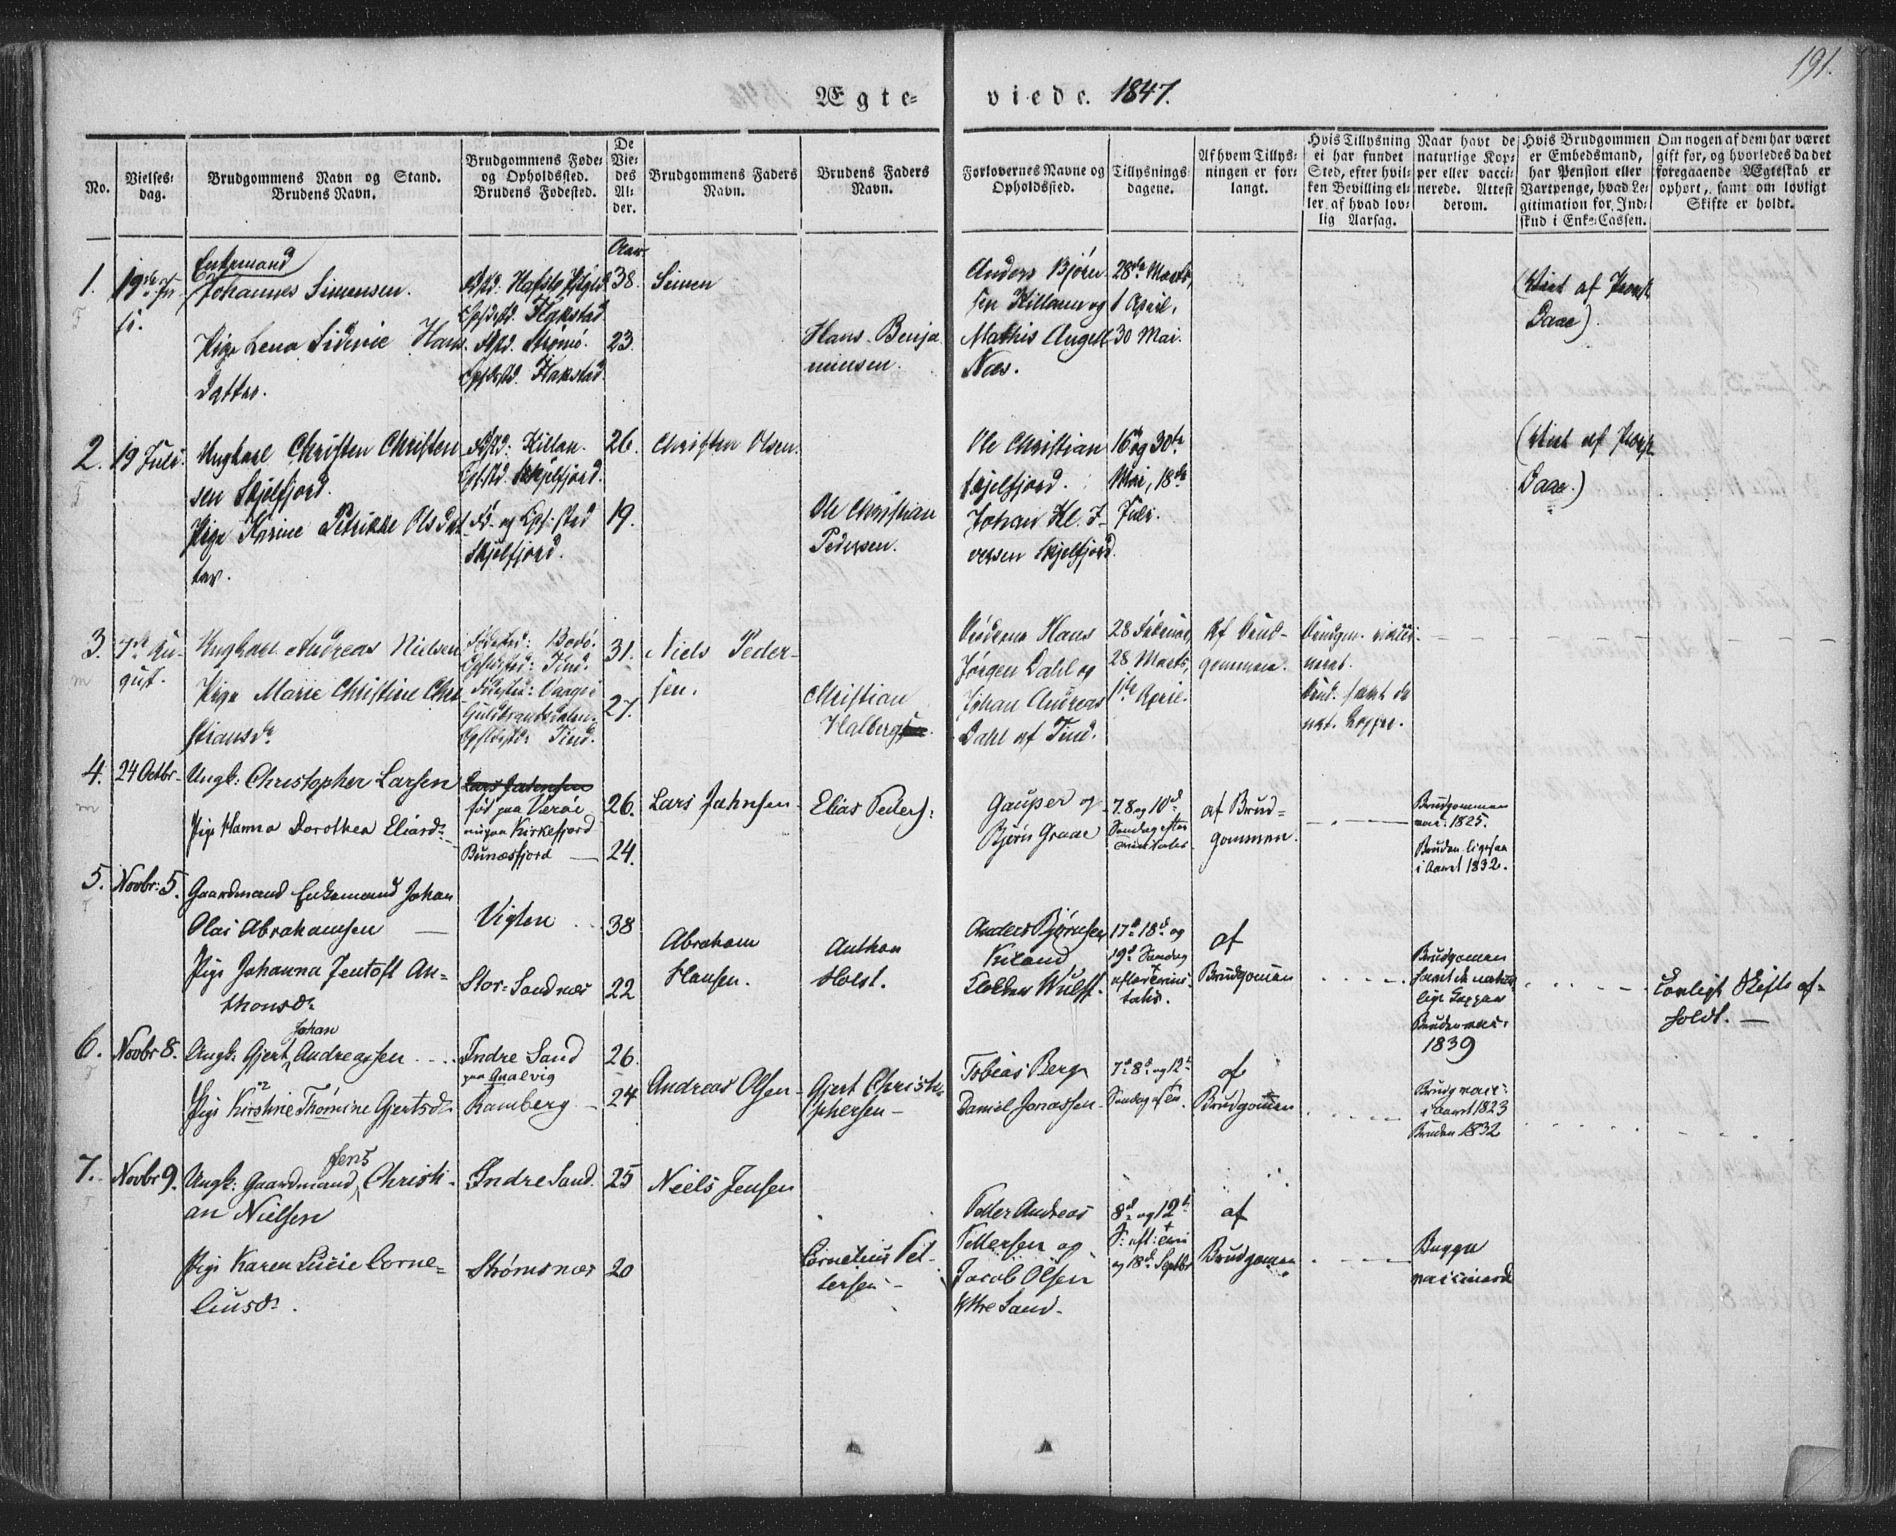 191.
Ægte- viede. 1847.
No.
Vielses-
dag.
Brudgommens Navn og Stand.
Brudens Navn.
Brudgommens Føde-
og Opholdssted.
Brudens Fødested.
De
Vie-
des
Al-
der.
Brudgommens Faders
Navn.
Brudens Faders
Navn.
Forlovernes Navne og
Opholdssted.
Tillysnings-
dagene.
Af hvem Tillys-
ningen er for-
langt.
Hvis Tillysning
ei har fundet
Sted, efter hvil-
ken Bevilling el-
ler af hvad lov-
lig Aarsag.
Naar havt de
naturlige Kop-
per eller vacci-
nerede. Attest
derom.
Hvis Brudgommen
er Embedsmand,
har Pension eller
Vartpenge, hvad Le-
gitimation for Ind-
skud i Enke-Cassen.
Om nogen af dem har været
gift for, og hvorledes da det
foregaaende Ægteskab er
ophørt, samt om lovligt
Skifte er holdt.
1.
Enkemand
Johannes Simensen.
Pige Lena Hans
datter.
Flakstad
Flakstad.
Aar
38.
23.
Simen
Hans Benja
minsen.
Anders Bjørn
sen Killan og
Mathis Angell
Næs.
28de Marts,
1 April,
30 Mai.
(Viet af
Daae).
2.
19 Juli.
Ungkarl Christen Christen
sen Skjelfjord.
Pige Karine Petrikke Olsdat
ter.
Killan.
Skjelfjord.
Skjelfjord.
26.
19.
Christen Olsen.
Ole Christian
Pedersen.
Ole Christian
Skjelfjord.
Johan Kl. I-
versen Skjelfjord.
16de og 30te
Mai, 18de
Juli.
(Viet af
Daae.)
3.
7de Au-
gust.
Ungkarl Andreas Nielsen
Pige Marie Christine Chri
stiansdr
Fødested: Bodø.
Tind.
Guldbrandsdalen.
Tind.
31.
27.
Niels Peder-
sen.
Christian
Halberg
Brødrene Hans
Jørgen Dahl og
Johan Andreas
Dahl af Tind.
28 Februar,
28 Marts,
1ste April.
Af Brud-
gommen.
Brudgm. vacci-
neret.
Brud. havt de
nat. Kopper.
4.
24 Octbr.
Ungk: Christopher Larsen
Pige Hanna Dorothea Eliasdr
født paa Værøe
nu paa Kirkefjord
Bunæsfjord
26.
24.
Lars Jahnsen
Elias Peders:
Gauper og
Bjørn Graae
7. 8 og 10de
Søndag efter
Trinitatis
af Brud-
gommen.
Brudgommen
vac: 1825.
Bruden ligesaa
i Aaret 1832.
5.
Novbr: 5.
Gaardmand Enkemand Johan
Olai Abrahamsen
Pige Johanna Jentoft An-
thonsdr
Vigten
Stor-Sandnæs
38
22
Abraham
Hansen.
Anthon
Holst.
Anders Bjørnsen
Kiland
Wulff.
17de 18de og
19de Søndag
efter Trini-
tatis.
af
Brudgomen
Brudgomen
havt de natur-
lige Kopper
Bruden vac:
1839
Lovligt Skifte af-
holdt.
6.
Novbr 8.
Ungk: Gjert Johan Andreassen
Pige Kirstine Thomine Gjertsdr
Indre Sand
paa Qvalvig
Ramberg
26.
24
Andreas Olsen
Gjert Christo-
phersen
Tobias Berg
Daniel Jonassen
7de 8de og 12te
Søndag
af
Brudgomen
Brudg vac:
i Aaret 1823
Bruden 1832
7.
Novbr 9.
Ungk: Gaardmand Jens Christi-
an Nielsen
Pige Karen Lucie Corne-
liusdr.
Indre Sand.
Strømsnæs
25
20
Niels Jensen
Cornelius Pet-
tersen
Petter Andreas
Pettersen og
Jacob Olsen
Yttre Sand.
8de og 12te
og 18de Septbr
af
Brudgomen
Begge
vaccinerede